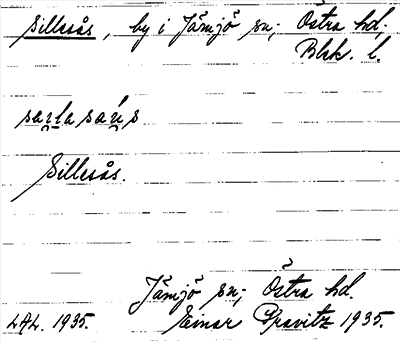 Sillesås, by i Jämjö sn; Östra hd,
Blek. l.
Sillesås.
Jämjö sn; Östra hd.
LAL. 1935. Einar Gravitz 1935.